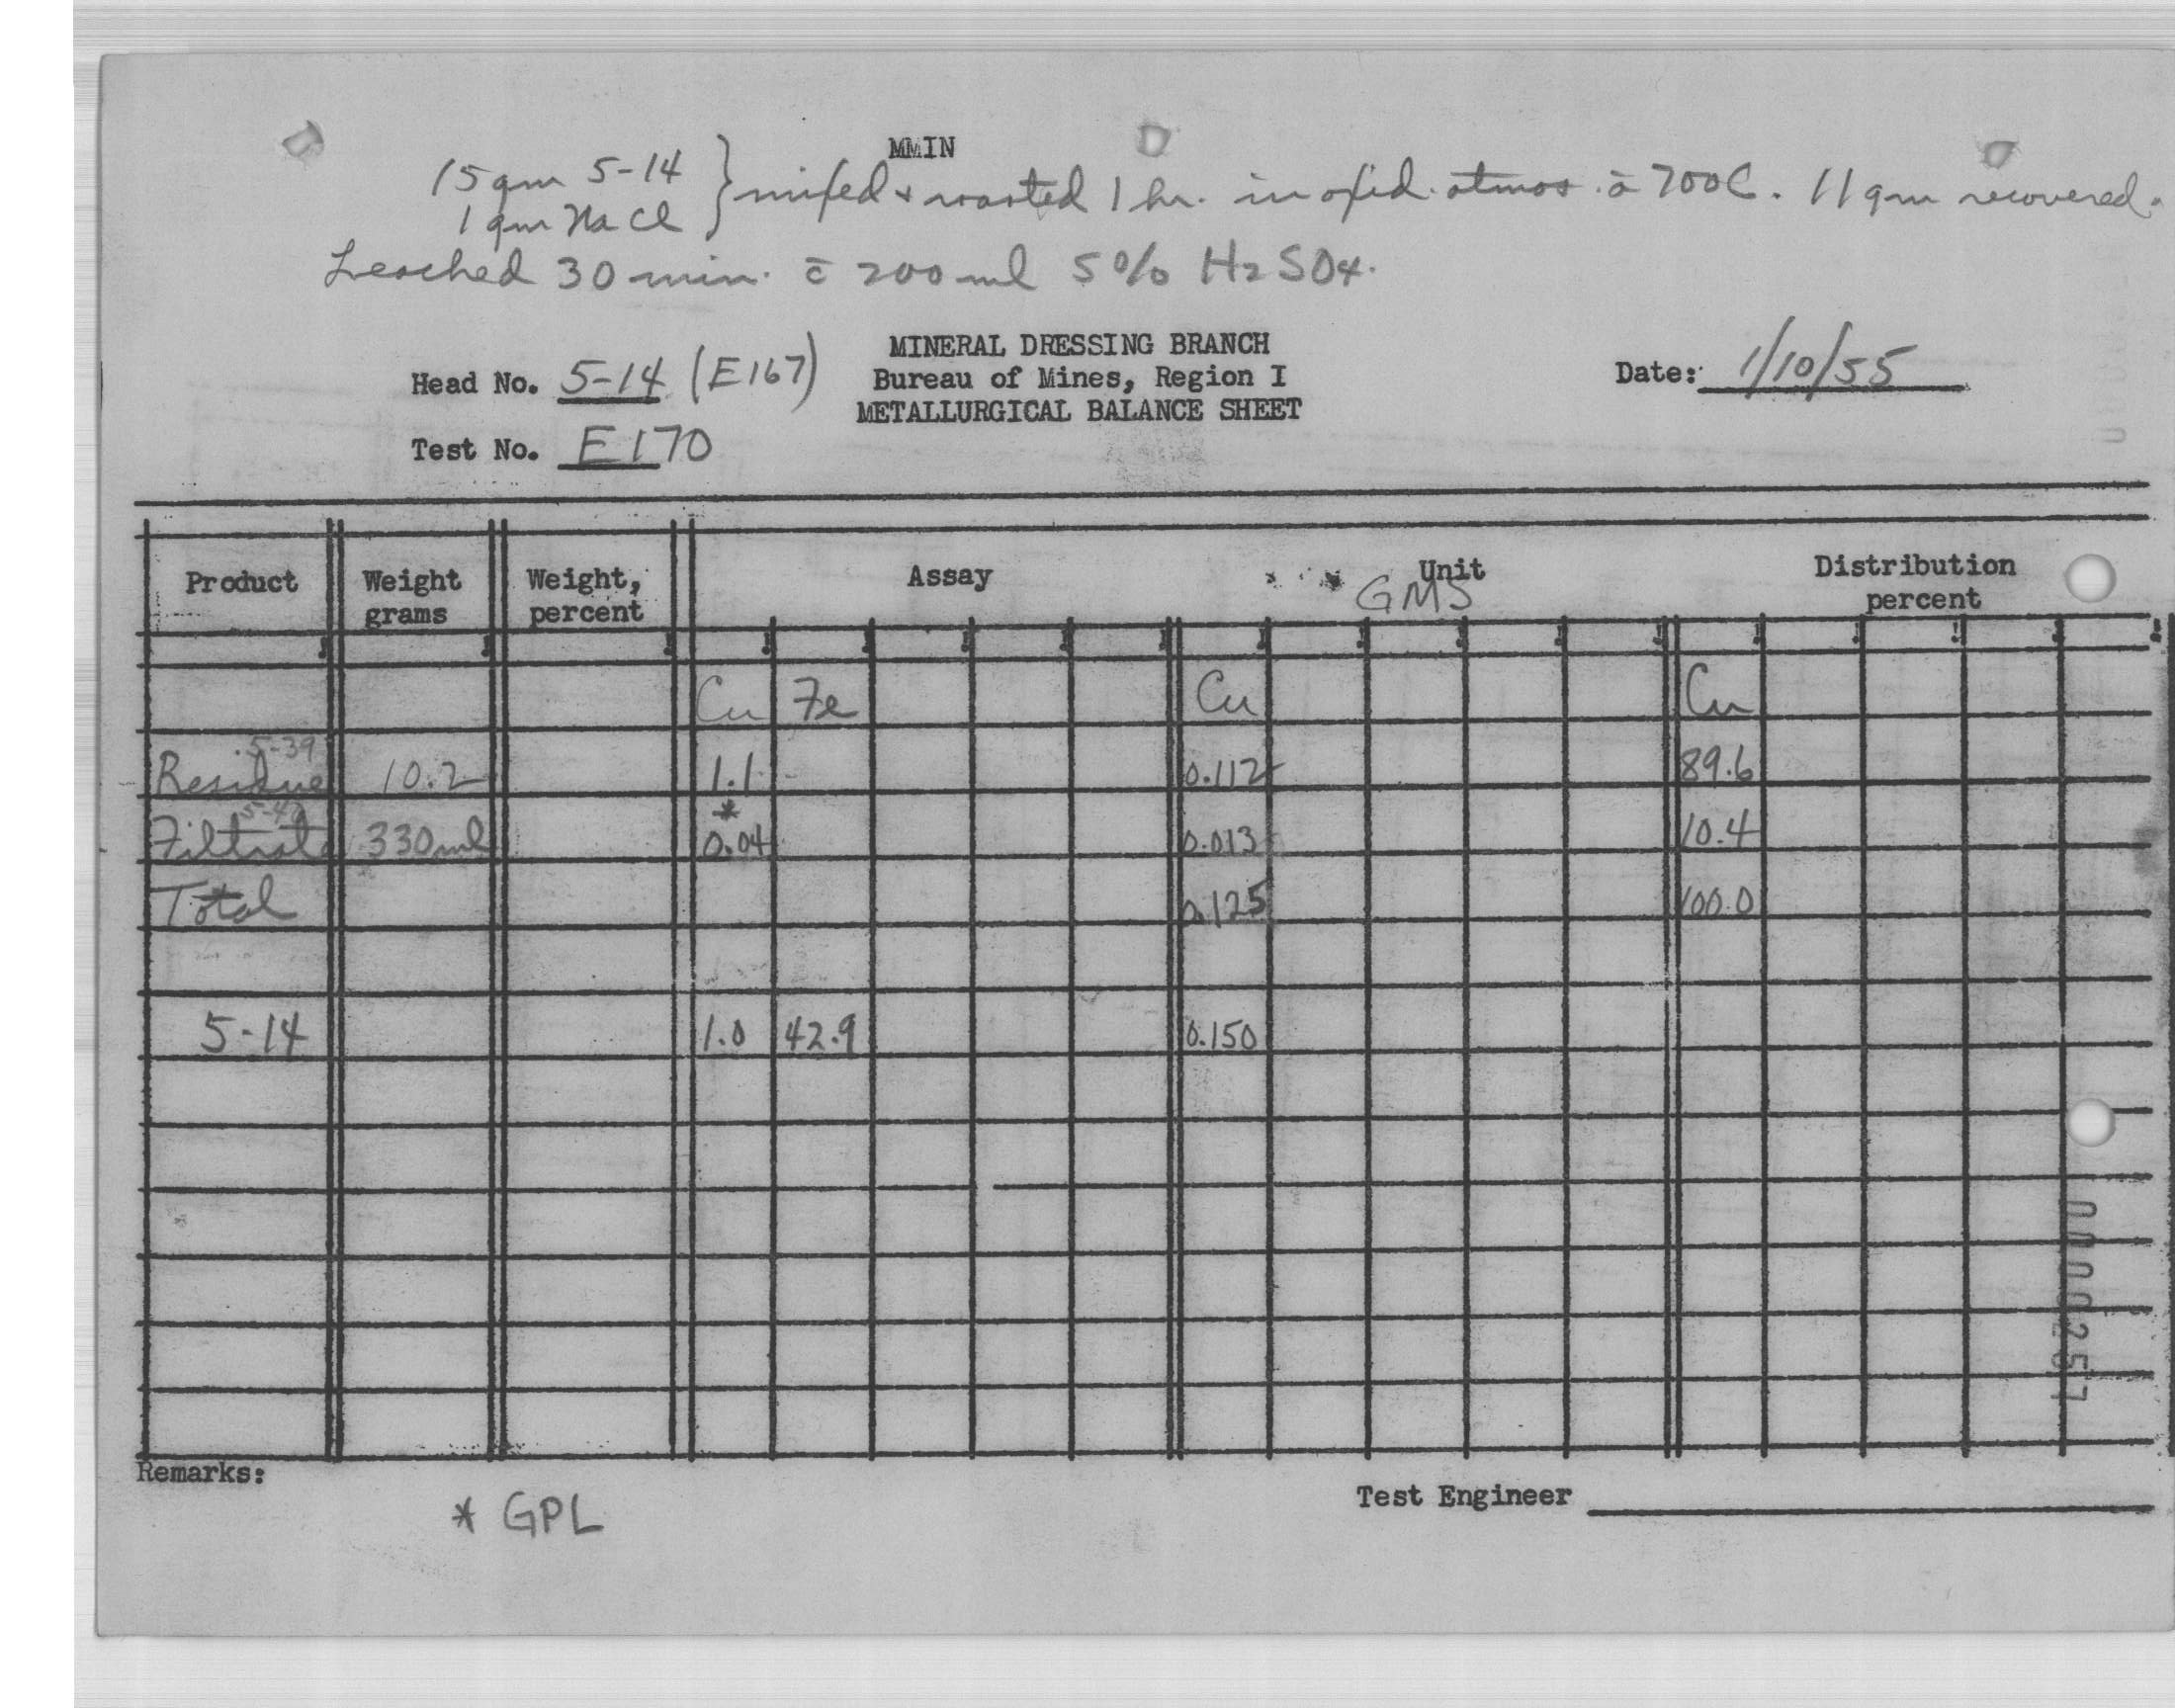 MMIN
15 gm 5-14 } mixed + roasted 1 hr. in oxid. atmos. @ 700C. 11 gm recovered.
1 gm NaCl
Leached 30 min. c̄ 200 ml 5% H2SO4.
MINERAL DRESSING BRANCH
Head No. 5-14 (E167) Bureau of Mines, Region I Date: 1/10/55
METALLURGICAL BALANCE SHEET
Test No. E170
Product Weight grams Weight, percent Assay Unit GMS Distribution percent
Cu Fe Cu Cu
5-39
Residue 10.2 1.1 0.112 89.6
5-40 *
Filtrate 330ml 0.04 0.013 10.4
Total 0.125 100.0
5-14 1.0 42.9 0.150
Remarks:
Test Engineer
* GPL
0000257